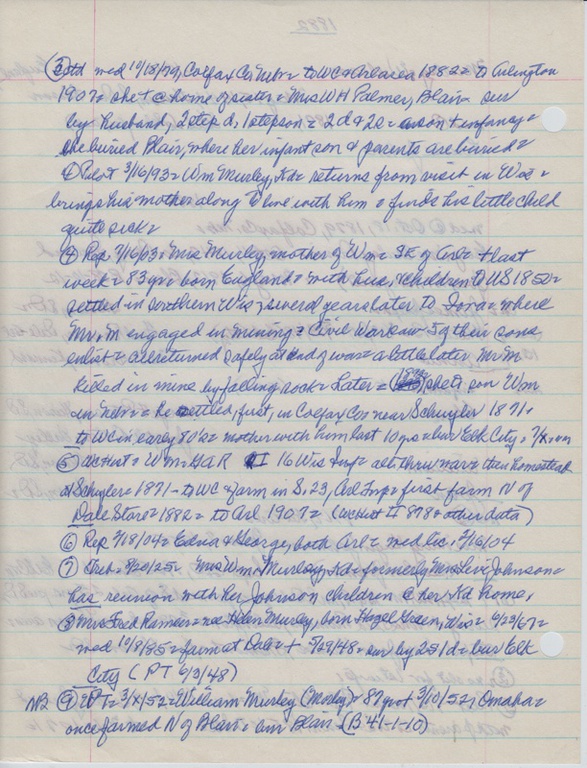 1882
③ Cotd med 10/18/79, Colfax Co, Nebr = to WC & Arl area 1882 = to Arlington
1907 = she + @ home of sister = Mrs W H Palmer, Blair = sur
by husband, 2 step d, 1 stepson = 2 d & 2 s = son + infancy =
she buried Blair, where her infant son & parents are buried =
④ Pilot 3/16/93 = Wm Murley, Kd = returns from visit in Wis =
brings his mother along to live with him & finds his little child
quite sick =
④ Rep 7/16/03 = Mrs Murley, mother of Wm = SE of Arl = + last
week = 83 yrs = born England = with hus, & children to US 1850 =
settled in southern Wis, several years later to Iowa = where
Mr. M engaged in mining = Civil War saw 5 of their sons
enlist = all returned safely at end of war = a little later Mr M
killed in mine by falling rock = Later = she to son Wm
in Nebr = he settled, first, in Colfax Co, near Schuyler 1871 =
to WC in early 80's = mother with him last 10 yrs = bur Elk City,
⑤ Wm = GAR 16 Wis Inf = all thru war = then homestead
@ Schuyler = 1871 - to WC & farm in S. 23, Arl Twp = first farm N of
Dale Store = 1882 = to Arl 1907 = (II 878 = other data)
⑥ Rep 2/18/04 = Edna & George, both Arl = med lic, 2/16/04
⑦ 8/20/25 = Mrs Wm Murley, Kd = formerly Mrs Johnson =
has reunion with her Johnson children @ her Kd home,
⑧ Mrs Fred Ramser = nee Helen Murley, born Hazel Green, Wis = 9/23/67 =
med 10/8/85 = farm at Dale = + 5/29/48 = sur by 2 s 1 d = bur Elk
City (PT 6/3/48)
NB ⑨ EPT = 3/x/52 = William Murley (Morley) = 87 yrs + 3/10/52, Omaha =
once farmed N of Blair = bur Blair = (B 41-1-10)